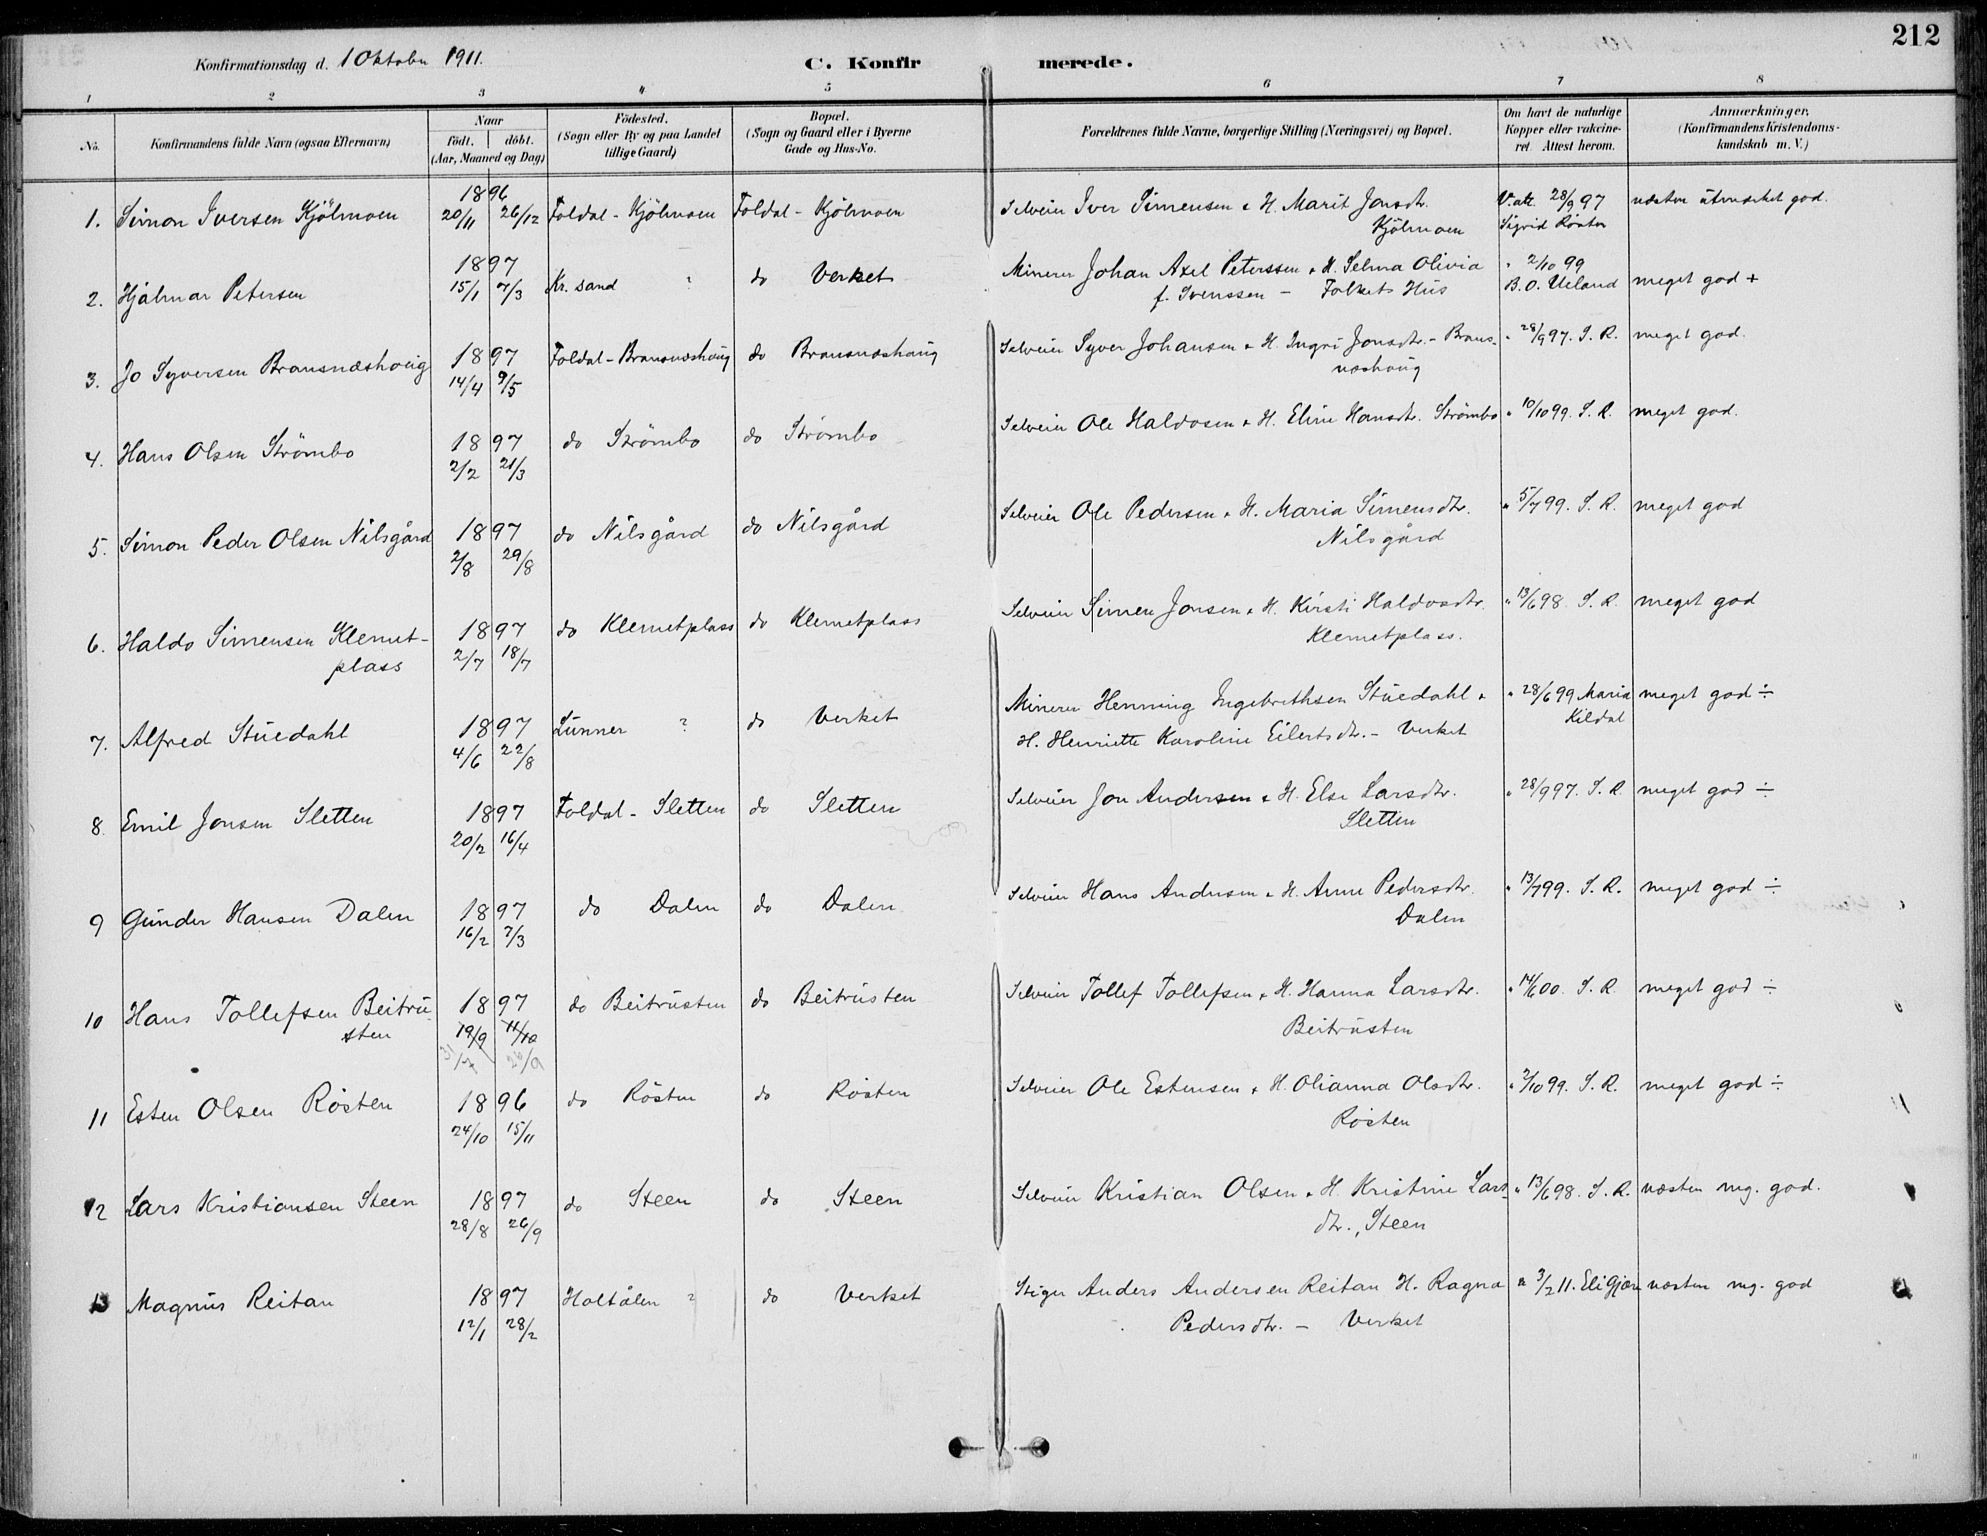 212
Konfirmationsdag d. 1 Oktober 1911.
C. Konfirmerede.
1 2 3 4 5 6 7 8
No. Konfirmandens fulde Navn (ogsaa Efternavn) Naar födt. döbt. (Aar, Maaned og Dag) Födested. (Sogn eller By og paa Landet tillige Gaard) Bopæl. (Sogn og Gaard eller i Byerne Gade og Hus-No. Forældrenes fulde Navne, borgerlige Stilling (Næringsvei) og Bopæl. Om havt de naturlige Kopper eller vakcineret. Attest herom. Anmærkninger, (Konfirmandens Kristendomskundskab m. V.)
1. Simon Iversen Kjölmoen 1896 20/11 26/12 Foldal - Kjölmoen Foldal - Kjölmoen Selveier Iver Simensen & H. Marit Jonsdtr. Kjölmoen V. att. 28/9 97 Sigrid Røsten næsten utmerket god.
2. Hjalmar Petersen 1897 15/1 7/3 Kr. sand ? do Verket Minerer Johan Axel Peterssen & H. Selma Olivia f. Svenssen - Folkets Hus " 2/10 99 B. O. Ueland meget god +
3. Jo Syversen Bransnæshoug 1897 14/4 9/5 Foldal - Bransnæshoug do Bransnæshoug Selveier Syver Johansen & H. Ingri Jonsdtr. - Bransnæshoug " 28/9 97. S. R. meget god.
4. Hans Olsen Strömbo 1897 2/2 21/3 do Strömbo do Strömbo Selveier Ole Haldosen & H. Eline Hansdtr. Strömbo " 10/10 99. S. R. meget god.
5. Simon Peder Olsen Nilsgård 1897 2/8 29/8 do Nilsgård do Nilsgård Selveier Ole Pedersen & H. Maria Simensdtr. Nilsgård " 5/7 99. S. R. meget god
6. Haldo Simensen Klemetplass 1897 2/7 18/7 do Klemetplass do Klemetplass Selveier Simen Jonsen & H. Kirsti Haldosdtr. Klemetplass. " 13/6 98. S. R. meget god
7. Alfred Stuedahl 1897 4/6 22/8 Lunner ? do Verket Minerer Henning Ingebrethsen Stuedahl & H. Henriette Karoline Eilertsdtr. - Verket " 28/6 99 Maria Kildal meget god ÷
8. Emil Jonsen Sletten 1897 20/2 16/4 Foldal - Sletten do Sletten Selveier Jon Andersen & H. Else Larsdtr. Sletten " 28/9 97. S. R. meget god ÷
9 Gunder Hansen Dalen 1897 16/2 7/3 do Dalen do Dalen Selveier Hans Andersen & H. Anne Pedersdtr. Dalen " 13/7 99. S. R. meget god ÷
10 Hans Tollefsen Beitrusten 1897 19/9 11/10 31/7 26/9 do Beitrusten do Beitrusten Selveier Tollef Tollefsen & H. Hanna Larsdtr. Beitrusten " 14/6 00. S. R. meget god ÷
11 Esten Olsen Rösten 1896 24/10 15/11 do Rösten do Rösten Selveier Ole Estensen & H. Olianna Olsdtr. Rösten " 2/10 99. S. R. meget god ÷
12 Lars Kristiansen Steen 1897 28/8 26/9 do Steen do Steen Selveier Kristian Olsen & H. Kristine Larsdtr., Steen " 13/6 98. S. R. næsten mg. god.
13 Magnus Reitan 1897 12/1 28/2 Holtålen ? do Verket Stiger Anders Andersen Reitan H. Ragna Pedersdtr. - Verket " 3/2 11. Eli næsten mg. god